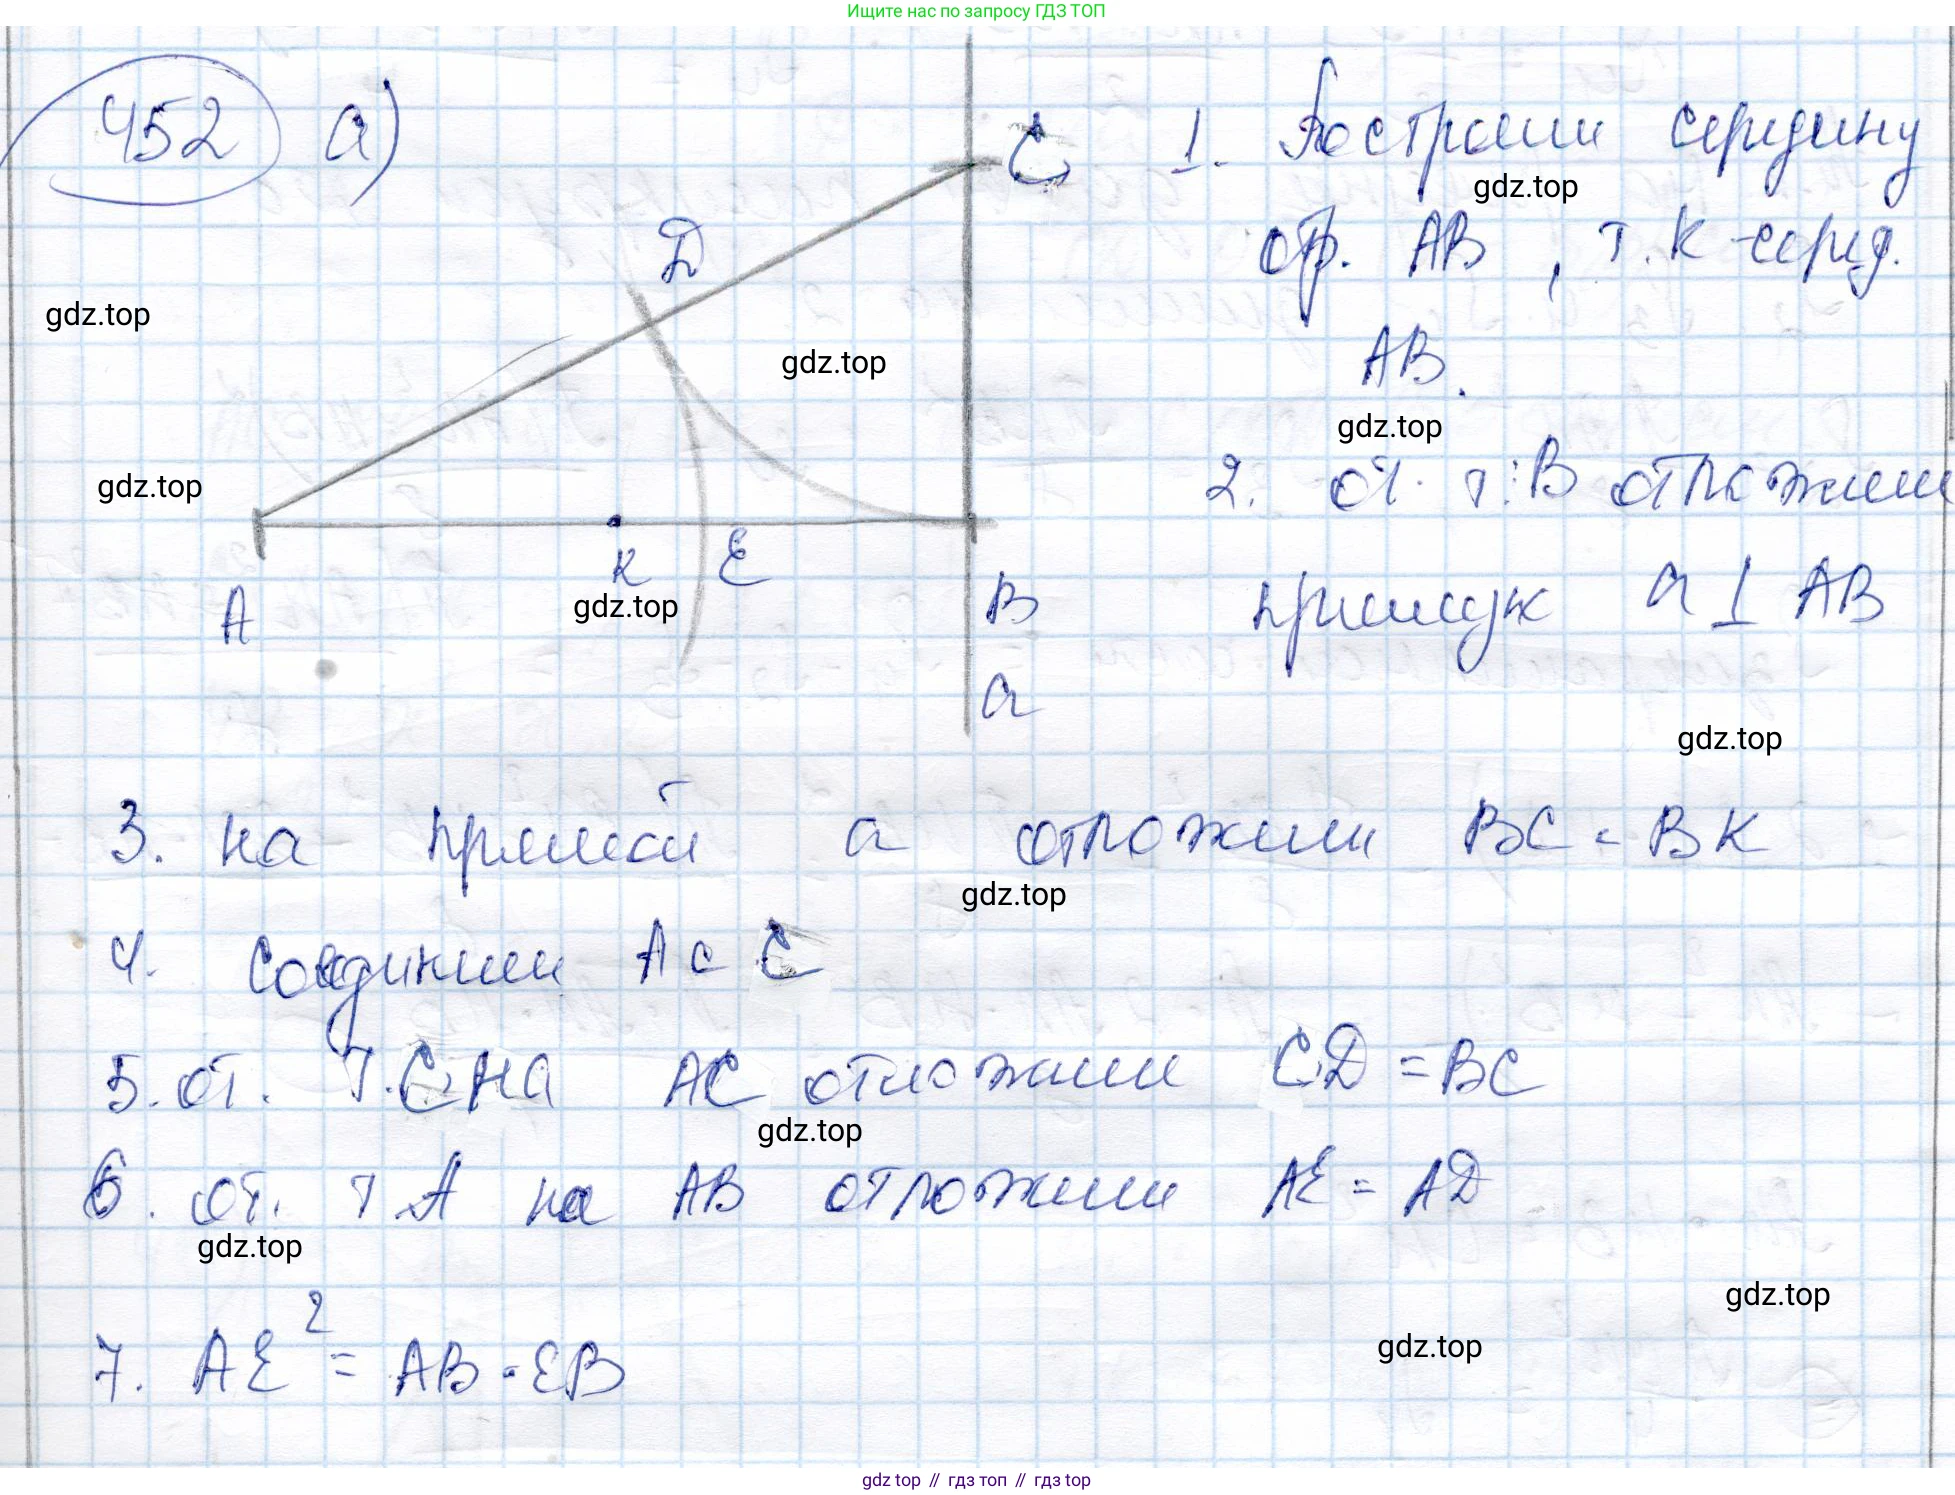 Ищите нас по запросу ГДЗ ТОП
452 а)
C
D
A
K
E
B
a
1. Построим середину
отр. AB, т. K - серед.
AB.
2. от т. B отложим
прямую a ⊥ AB
3. на прямой a отложим BC = BK
4. Соединим A с C
5. от. т. C на AC отложим CD = BC
6. от. т A на AB отложим AE = AD
7. AE² = AB · EB
gdz.top
gdz.top
gdz.top
gdz.top
gdz.top
gdz.top
gdz.top
gdz.top
gdz.top
gdz.top
gdz.top
gdz.top
gdz top // гдз топ // гдз top